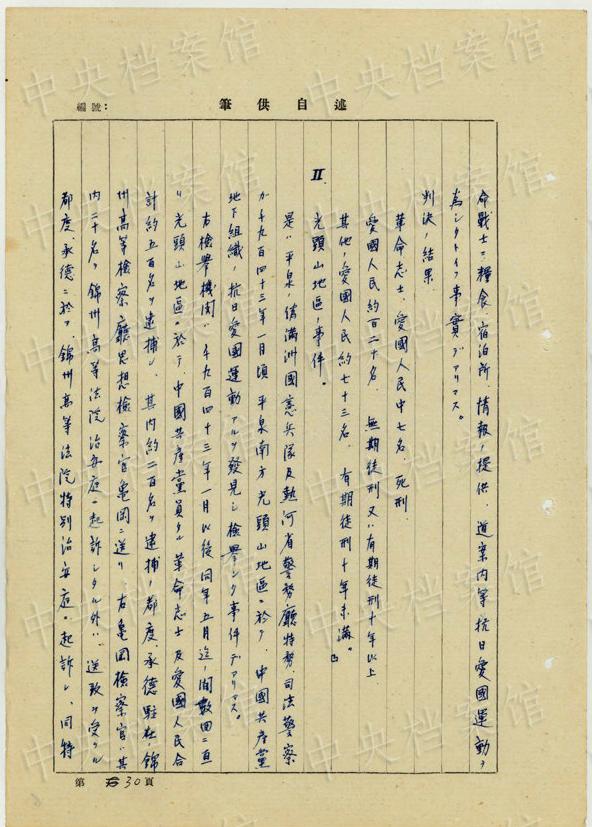 中央档案馆
筆供自述
編號：
命戰士ニ糧食、宿泊所、情報ノ提供、道案内等抗日愛國運動ヲ
為シタトイフ事實デアリマス。
判決ノ結果
革命志士、愛國人民中七名、死刑
愛國人民約百二十名、無期徒刑又ハ有期徒刑十年以上
其他ノ愛國人民約七十三名、有期徒刑十年未満。
II 光頭山地區ノ事件。
是ハ平泉ノ偽満洲國憲兵隊及熱河省警務廳特務、司法警察
ガ千九百四十三年一月頃平泉南方光頭山地區ニ於テ、中國共産黨
地下組織ノ抗日愛國運動アルヲ發見シ檢擧シタ事件デアリマス。
右檢擧機関ハ千九百四十三年一月以後同年五月迄ノ間數回ニ亘
リ光頭山地區ニ於テ、中國共産黨員タル革命志士及愛國人民合
計約五百名ヲ逮捕シ、其内約二百名ヲ逮捕ノ都度、承德駐在ノ錦
州高等檢察廳思想檢察官亀岡ニ送リ、右亀岡檢察官ハ其
内二十名ヲ錦州高等法院治安庭ヘ起訴シタル外ハ、送致ヲ受クル
都度、承德ニ於テ、錦州高等法院特別治安庭ヘ起訴シ、同特
第 30 頁